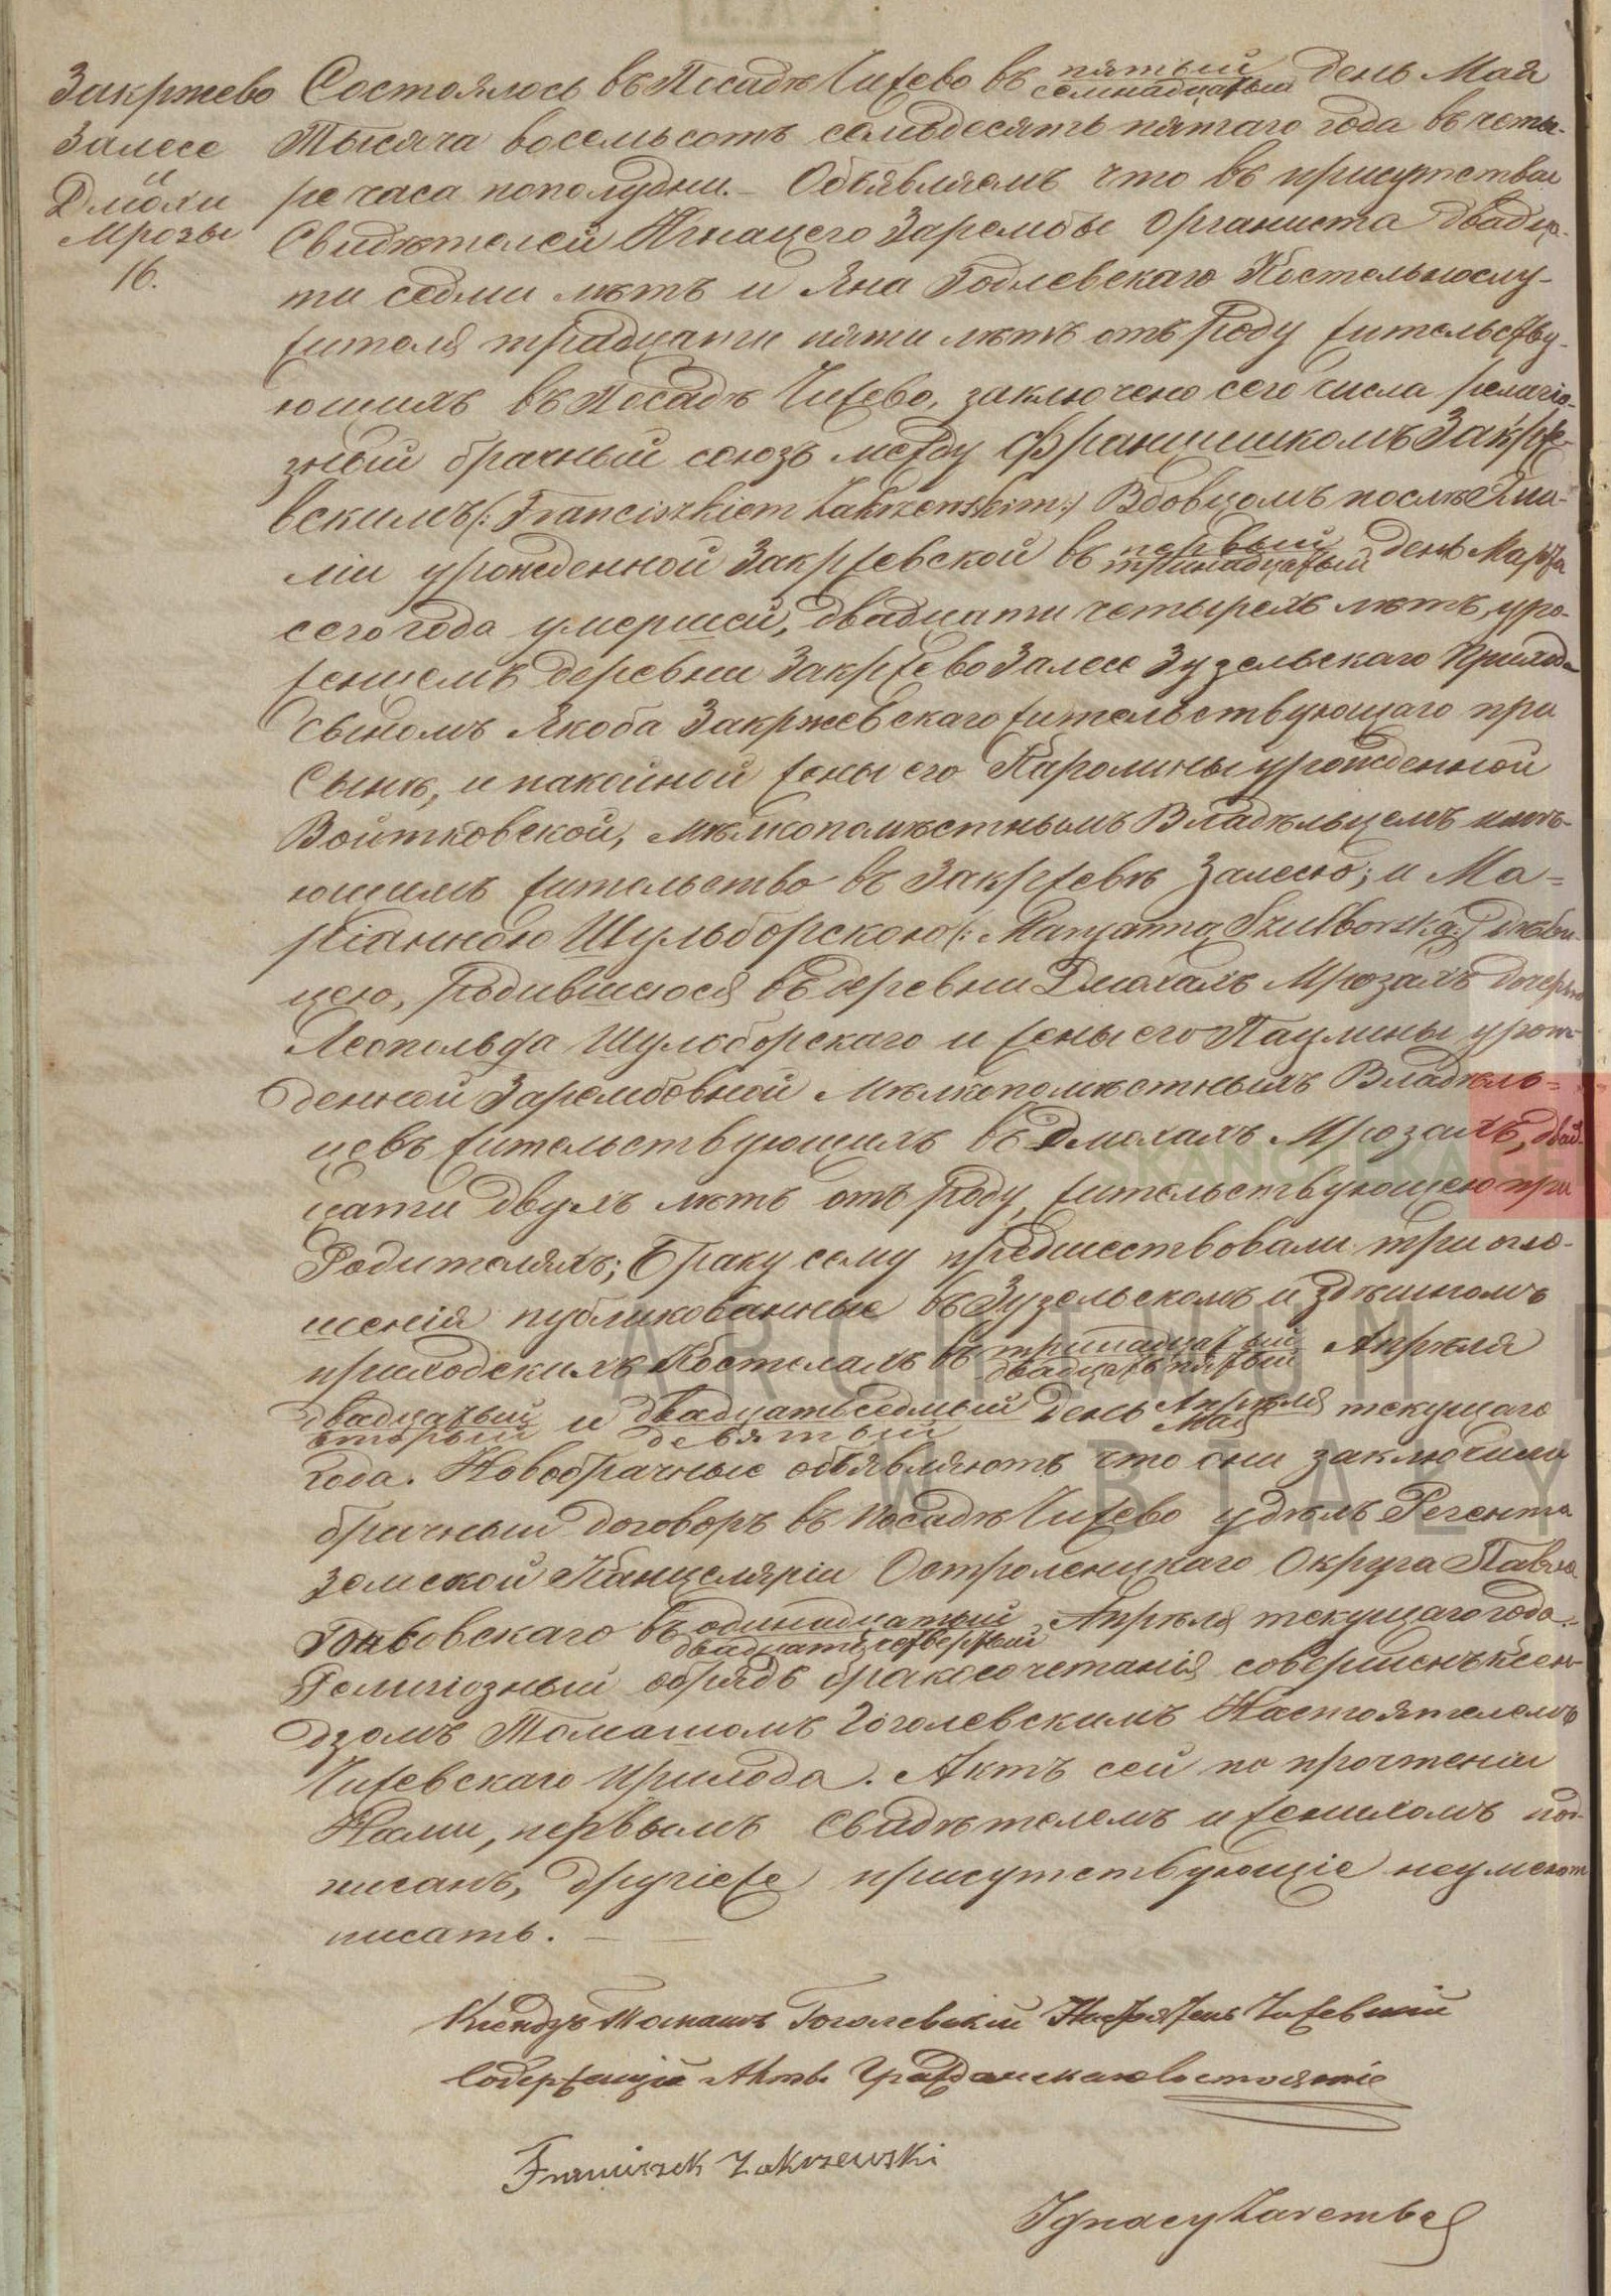 Закржево
Залесе
и
Дмохи
Мрозы
16.
Состоялось въ Посадѣ Чижево въ пятый
семнадцатый день Мая
Тысяча восемьсотъ семьдесятъ пятаго года въ четы-
ре часа пополудни. – Объявляемъ что въ присутствіи
Свидѣтелей Игнацего Зарембы Органиста двадца-
ти седми лѣтъ и Яна Годлевскаго Костельнослу-
жителя тридцати пяти лѣтъ отъ роду жительству-
ющихъ въ Посадѣ Чижево, заключено сего числа религіо-
зный брачный союзъ между Францишкомъ Закрже-
вскимъ (: Franciszkiem Zakrzewskim :) Вдовцомъ послѣ Эми-
ліи урожденной Закржевской въ первый
тринадцатый день Марта
сего года умершей, двадцати четырехъ лѣтъ, уро-
женцемъ деревни Закржево Залесе Зузельскаго Прихода
сыномъ Якоба Закржевскаго жительствующаго при
Сынѣ, и покойной жены его Каролины урожденной
Войтковской, мѣлкопомѣстнымъ Владѣльцемъ имѣ-
ющимъ жительство въ Закржевѣ Залесю; и Ма-
ріанною Шульборскою (: Maryanną Szulborską :) Дѣви-
цею, родившеюся въ деревни Дмохахъ Мрозахъ дочерью
Леопольда Шульборскаго и жены его Паулины урож-
денной Зарембовной Мѣлкопомѣстныхъ Владѣль-
цевъ жительствующихъ въ Дмохахъ Мрозахъ, двад-
цати двухъ лѣтъ отъ роду, жительствующею при
Родителяхъ; Браку сему предшествовали три огло-
шенія публикованные въ Зузельскомъ и здѣшномъ
приходскихъ Костелахъ въ тринадцатый
двадцать пятый Апрѣля
двадцатый
вторый и двадцать седмый
девятый день Апрѣля
Мая текущаго
года. Новобрачные объявляютъ что они заключили
брачный договоръ въ Посадѣ Чижево удѣлъ Регента
Земской Канцеляріи Остроленцкаго Округа Павла
въ одинадцатый
двадцать четвертый Апрѣля текущаго года. –
Религіозный обрядъ бракосочетанія совершенъ Ксен-
дзомъ Томашомъ Гоголевскимъ Настоятелемъ
Чижевскаго Прихода. Актъ сей по прочтеніи
Нами, первымъ Свидѣтелемъ и женихомъ под-
писанъ, другіеже присутствующіе неумеютъ
писать. — —
Ксендзъ Томашъ Гоголевскій Настоятель Чижевскій
Содержащій Акты Гражданскаго Состоянія
Franciszek Zakrzewski
Ignacy Zaremba
SKANOTEKA GEN
ARCHIWUM P
W BIAŁY